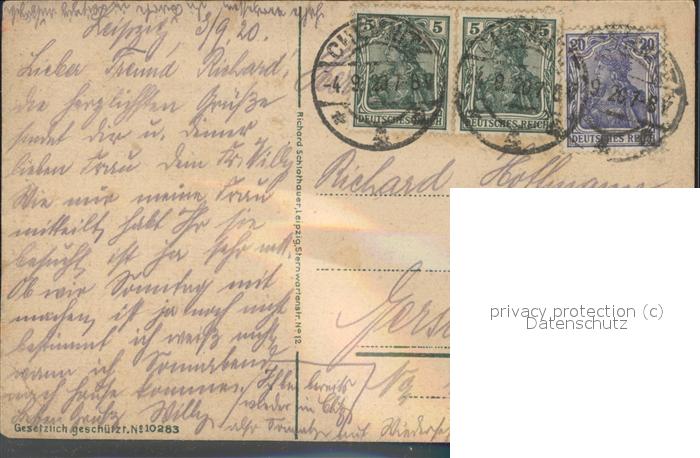 Leipzig, 3/9.20.
Lieber Freund Richard,
die herzlichsten Grüße
sendet dir u. deiner
lieben Frau dein Fr. Willy
Wie mir meine Frau
mitteilt, habt Ihr sie
besucht, ist ja sehr nett.
Ob wir Sonntag mit
machen, ist ja noch nicht
bestimmt ich weiß nicht
wann ich Sonnabend
nach Hause komme.
Besten Gruß Willy
Ich bin bereits
wieder in
also Sonntag auf Wiederse
Gesetzlich geschützt. No 10283
Richard Schlothauer, Leipzig, Sternwartenstr. No 12.
5 5
DEUTSCHES REICH
5 5
DEUTSCHES REICH
20 20
DEUTSCHES REICH
CHEMNITZ
-4.9.20.7-8V
Richard Hoffmann
Gers
No
privacy protection (c)
Datenschutz